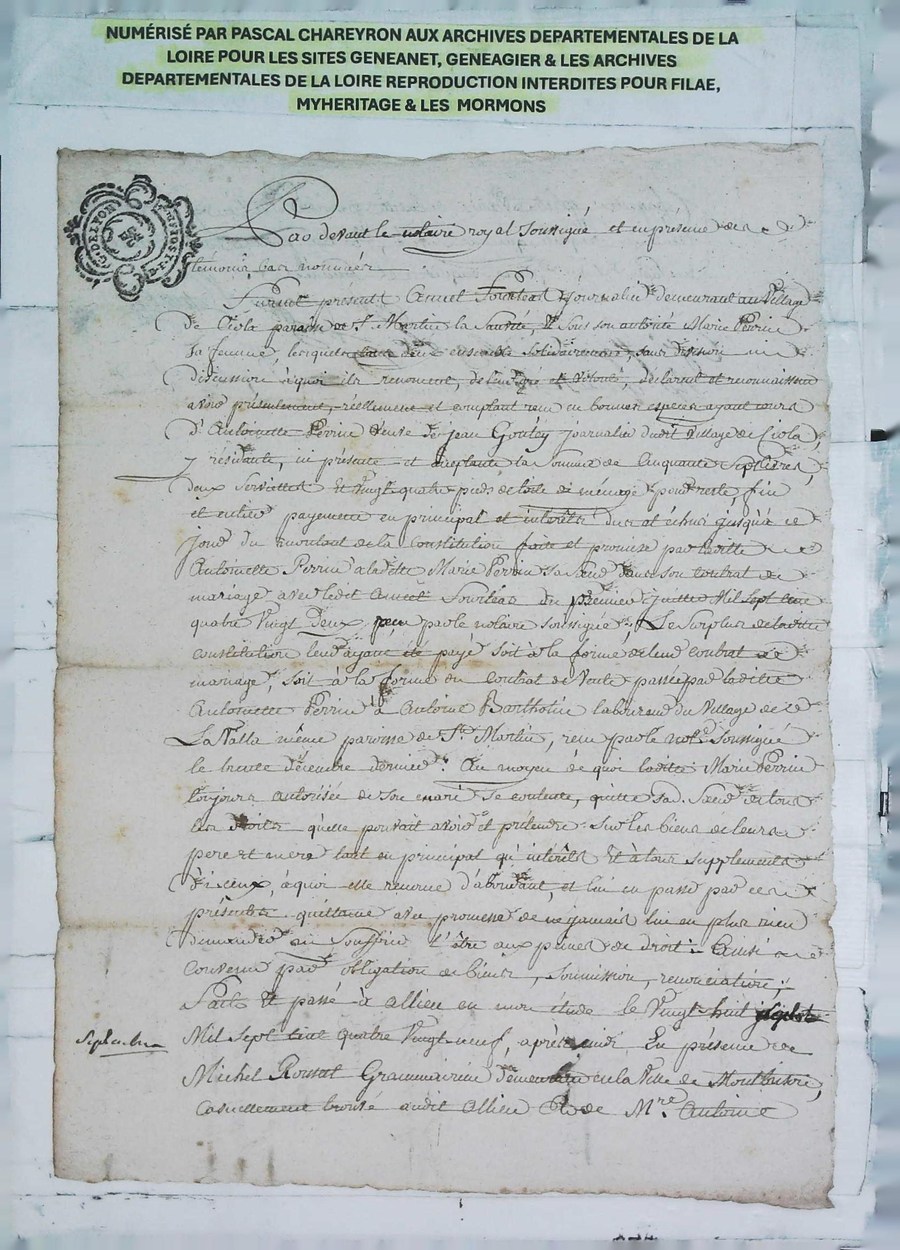 NUMÉRISÉ PAR PASCAL CHAREYRON AUX ARCHIVES DEPARTEMENTALES DE LA
LOIRE POUR LES SITES GENEANET, GENEAGIER & LES ARCHIVES
DEPARTEMENTALES DE LA LOIRE REPRODUCTION INTERDITES POUR FILAE,
MYHERITAGE & LES MORMONS
G. DE LYON
Par devant le notaire royal soussigné et en présence des
temoins bas nommés
Furent présents Annet journalier demeurant au Village
de paroisse de St. Martin la Sauveté, & sous son autorité Marie Perrin
sa femme, lesquels ensemble solidairement, sans division ni
discussion à quoi ils renoncent, de leur gré et volonté, déclarent et reconnaissent
avoir présentement, réellement et comptant reçu en bonnes espèces ayant cours
d'Antoinette Perrin veuve de Jean journalier dudit Village de
y résidante, ici présente et acceptante la somme de Cinquante sept livres,
deux serviettes et vingt quatre pieds de toile de ménage pour reste, fin
et entier payement en principal et intérêts échus jusqu'à ce
jour du montant de la Constitution faite et promise par ladite
Antoinette Perrin à ladite Marie Perrin sa soeur dans son contrat de
mariage avec ledit Annet du premier juillet Mil sept cent
quatre vingt deux, reçu par le notaire soussigné; Le surplus de ladite
constitution leur ayant été payé soit à la forme de leur contrat de
mariage, soit à la forme du contrat de vente passé par ladite
Antoinette Perrin à Antoine Bartholin laboureur du Village de
La Valla même paroisse de St. Martin, reçu par le notre. soussigné
le trente décembre dernier. Au moyen de quoi ladite Marie Perrin
toujours autorisée de son mari se contente, quitte sad. soeur de tous
les droits qu'elle pouvait avoir et prétendre sur les biens de leurs
pere et mere tant en principal qu'intérêts et à tous supplements
d'iceux, à quoi elle renonce d'abondant, et lui en passe par ces
présentes quittance avec promesse de ne jamais lui en plus rien
demander ni souffrir l'être aux peines de droit: Ainsi
Convenu par obligation de biens, soumission, renonciation;
Fait & passé à Allieu en mon étude le vingt huit
septembre
Mil sept cent quatre vingt neuf, après midi, En présence de
Michel Grammairien demeurant en la Ville de
Casuellement trouvé audit Allieu & de Mre. Antoine